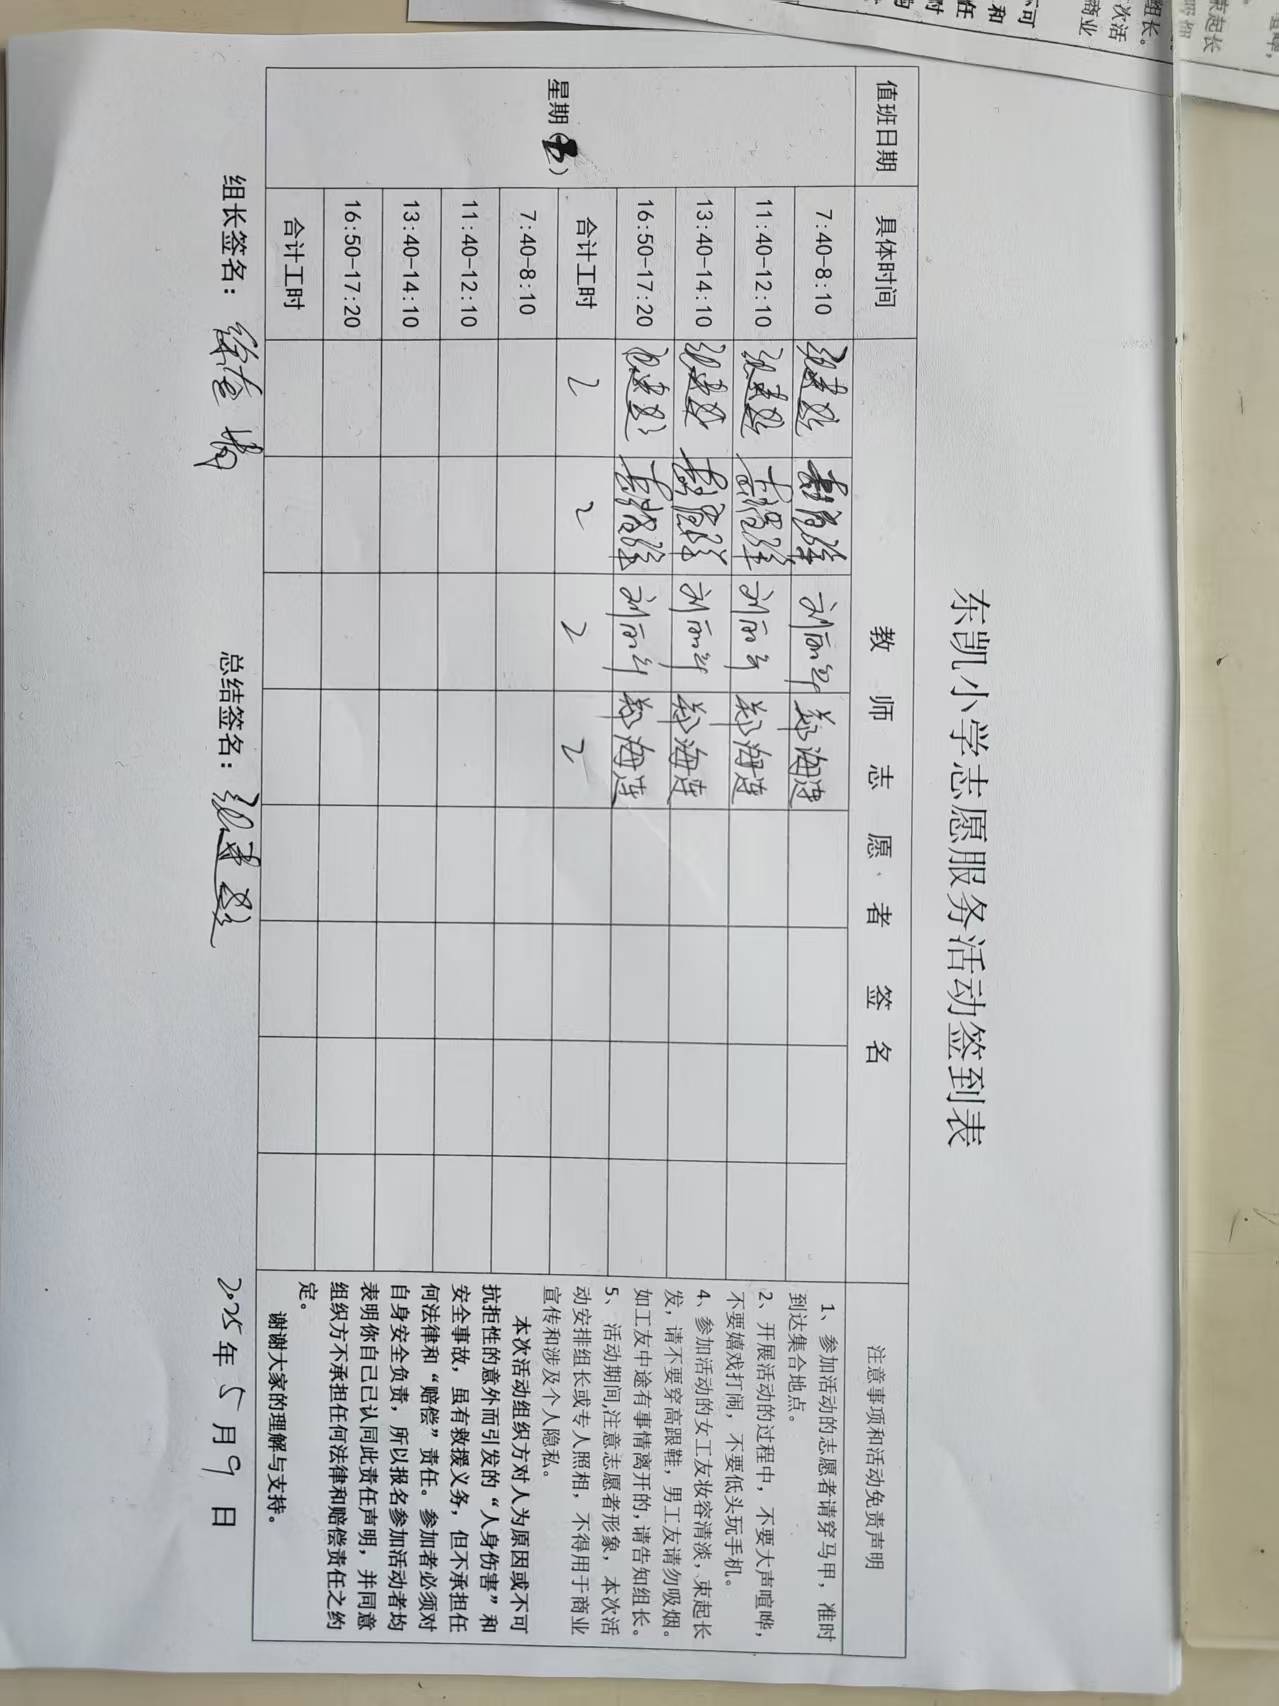 东凯小学志愿服务活动签到表
值班日期 具体时间 教师志愿者签名 注意事项和活动免责声明
星期（五）
7:40-8:10 刘丽华 郑海连
11:40-12:10 刘丽华 郑海连
13:40-14:10 刘丽华 郑海连
16:50-17:20 刘丽华 郑海连
合计工时 2 2 2 2
7:40-8:10
11:40-12:10
13:40-14:10
16:50-17:20
合计工时
1、参加活动的志愿者请穿马甲，准时
到达集合地点。
2、开展活动的过程中，不要大声喧哗，
不要嬉戏打闹，不要低头玩手机。
4、参加活动的女工友妆容清淡，束起长
发，请不要穿高跟鞋，男工友请勿吸烟。
如工友中途有事情离开的，请告知组长。
5、活动期间,注意志愿者形象，本次活
动安排组长或专人照相，不得用于商业
宣传和涉及个人隐私。
本次活动组织方对人为原因或不可
抗拒性的意外而引发的“人身伤害”和
安全事故，虽有救援义务，但不承担任
何法律和“赔偿”责任。参加者必须对
自身安全负责，所以报名参加活动者均
表明你自己已认同此责任声明，并同意
组织方不承担任何法律和赔偿责任之约
定。
谢谢大家的理解与支持。
组长签名： 总结签名： 2025年5月9日